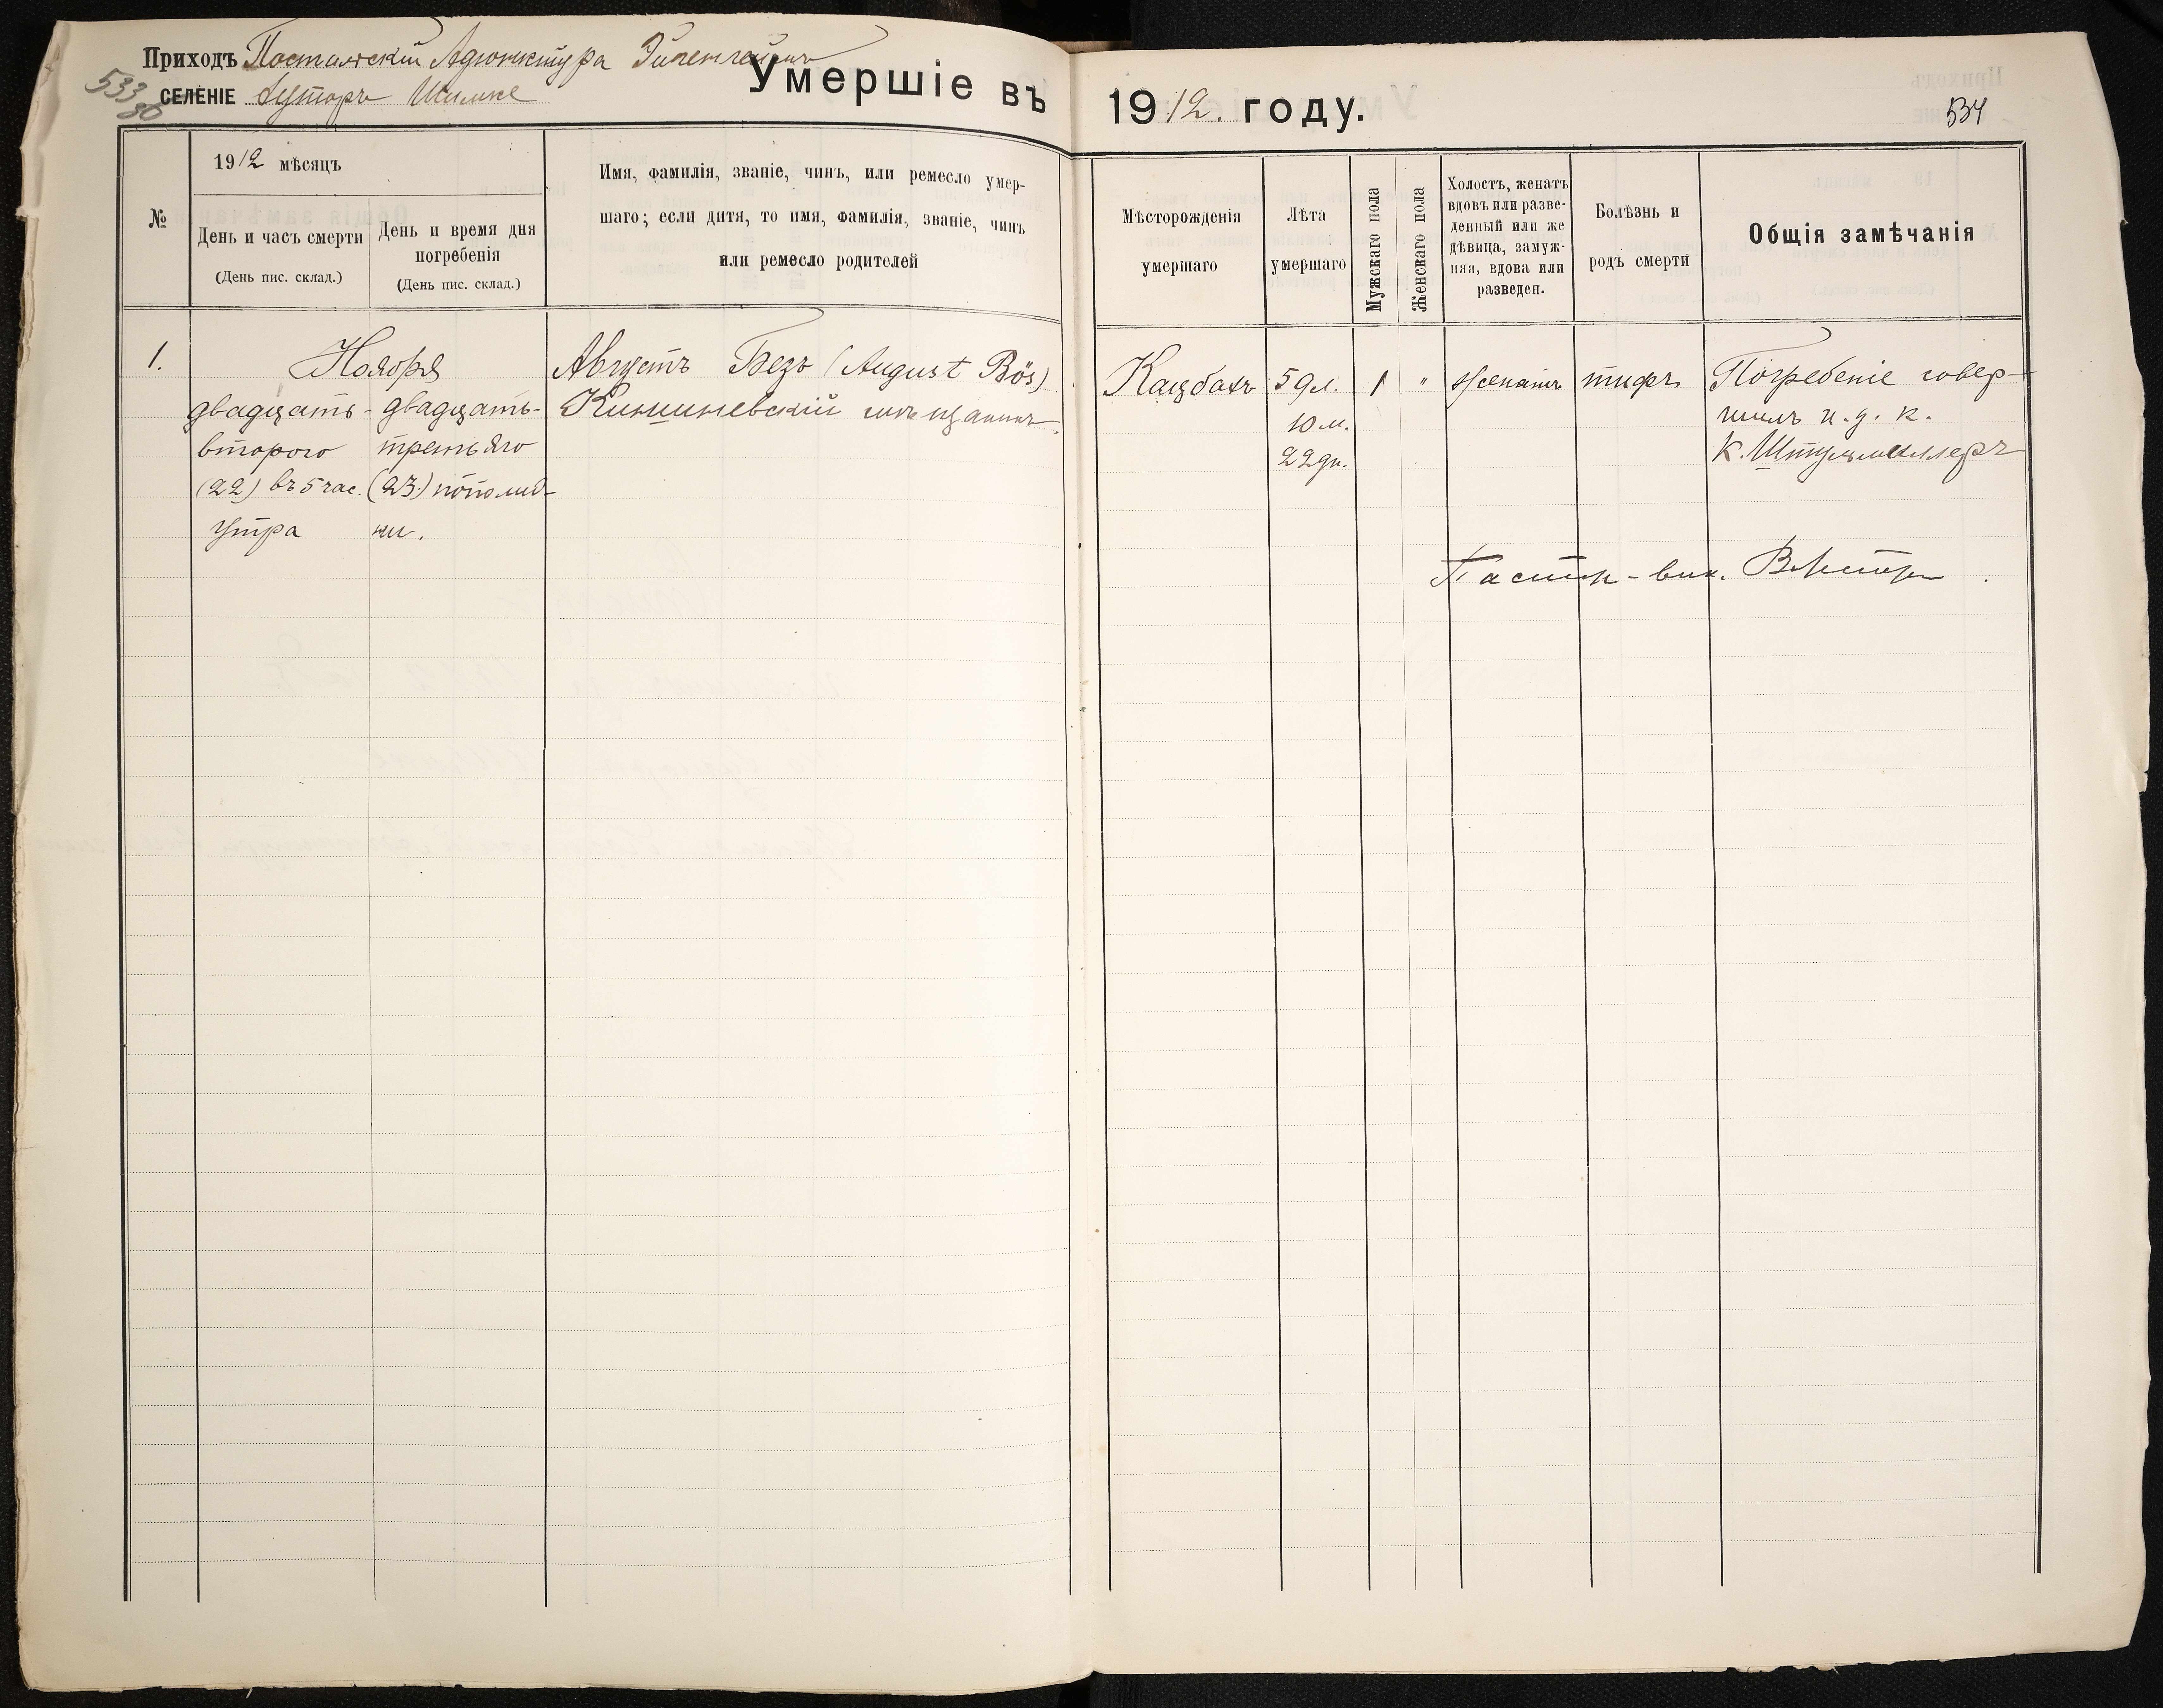 Приходъ Постальскій Адюнктура Эйгенгеймъ
533
30
СЕЛЕНІЕ Хуторъ Шимке
Умершіе въ 1912. году.
534
№
1912 мѣсяцъ
День и часъ смерти
(День пис. склад.)
День и время дня
погребенія
(День пис. склад.)
Имя, фамилія, званіе, чинъ, или ремесло умер-
шаго; если дитя, то имя, фамилія, званіе, чинъ
или ремесло родителей
Мѣсторожденія
умершаго
Лѣта
умершаго
Мужскаго пола
Женскаго пола
Холостъ, женатъ
вдовъ или разве-
денный или же
дѣвица, замуж-
няя, вдова или
разведен.
Болѣзнь и
родъ смерти
Общія замѣчанія
1.
Ноября
двадцать-
второго
(22) въ 5 час.
утра
двадцать-
третьяго
(23.) пополуд-
ни.
Августъ Безъ (August Bös)
Кишиневскій мѣщанинъ.
Кацбахъ
59л.
10 м.
22дн.
1
"
женатъ
тифъ
Погребеніе совер-
шилъ и. д. к.
К. Штурмиллеръ
Пастор-вик.